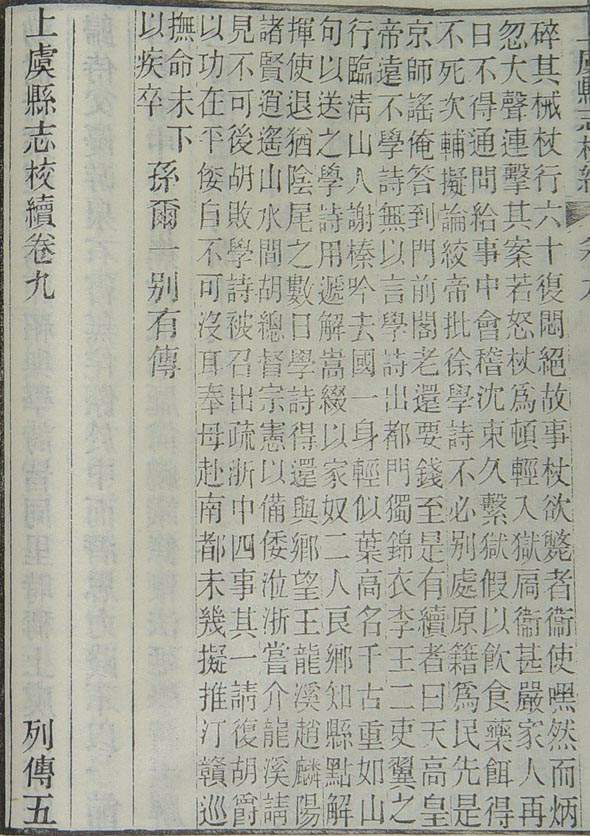 碎其械杖行六十復悶絕故事杖欲斃者衞使嘿然而炳
忽大聲連擊其案若怒杖爲頓輕入獄扃衞甚嚴家人再
日不得通問給事中會稽沈束久繫獄假以飮食藥餌得
不死次輔擬論絞帝批徐學詩不必別處原籍爲民先是
京師謠俺答到門前閣老還要錢至是有續者曰天高皇
帝遠不學詩無以言學詩出都門獨錦衣李王二吏翼之
行臨淸山人謝榛吟去國一身輕似葉高名千古重如山
句以送之學詩用遞解嵩綴以家奴二人良鄉知縣點解
揮使退猶陰尾之數日學詩得還與鄉望王龍溪趙麟陽
諸賢逍遙山水間胡總督宗憲以備倭涖浙嘗介龍溪請
見不可後胡敗學詩被召出疏浙中四事其一請復胡爵
以功在平倭自不可沒耳奉母赴南都未幾擬推汀贛巡
撫命未下
以疾卒
孫爾一別有傳
上虞縣志校續卷九
列傳五